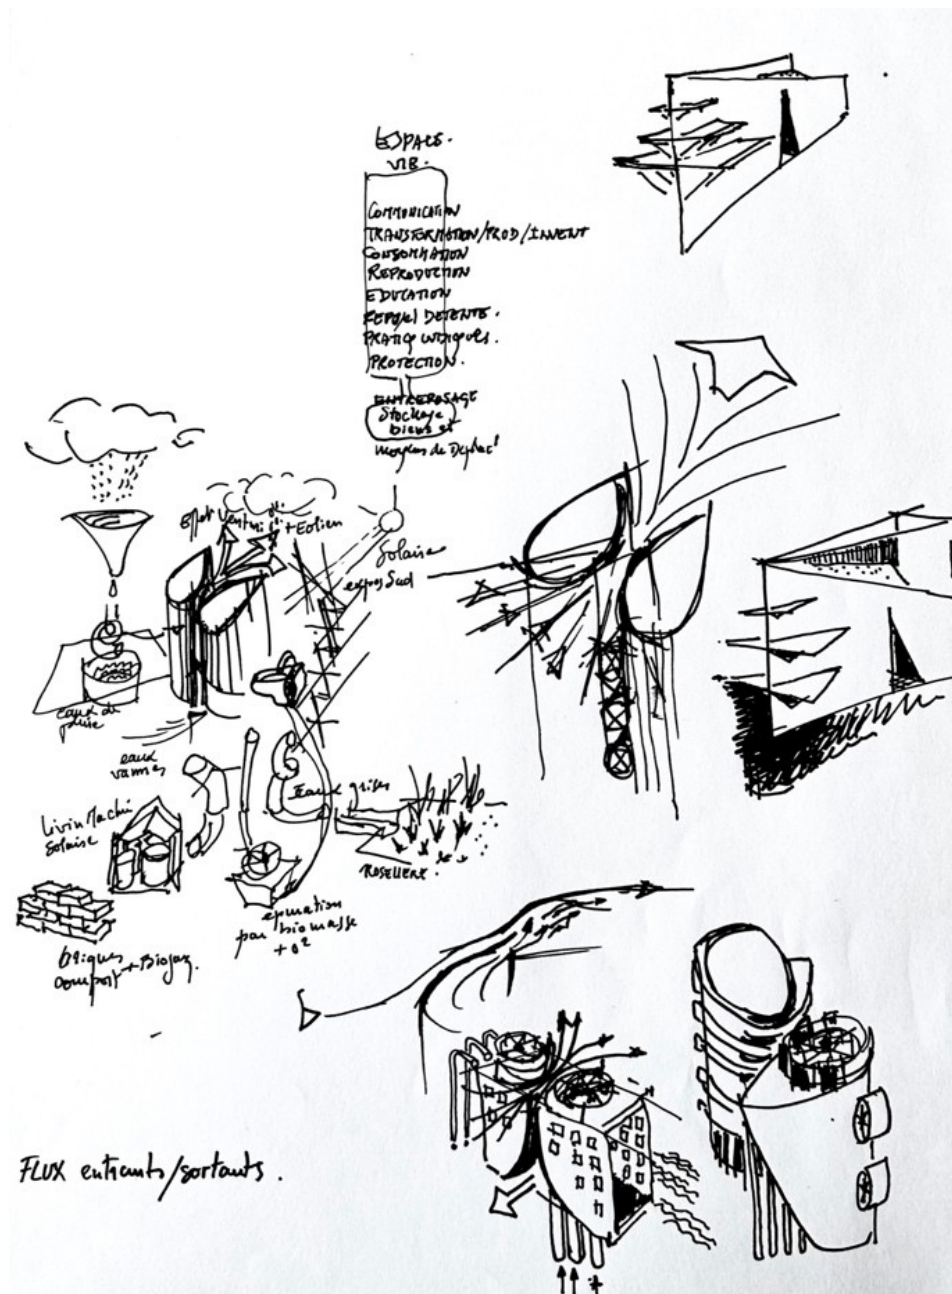 ESPACE.
VIE.
COMMUNICATION
TRANSFORMATION/PROD/INVENT
CONSOMMATION
REPRODUCTION
EDUCATION
REPOS/DETENTE.
PRATIQ LUDIQUES.
PROTECTION.
ENTREPOSAGE
Stockage
biens et
moyens de Deplact
Effet Venturi + Eolien
Solaire
expos Sud
eaux de
pluie
eaux
vannes
Eaux grises
Livin Machi
Solaire
ROSELIERE.
epuration
par biomasse
+ O²
briques
compost + Biogaz.
FLUX entrants/sortants.